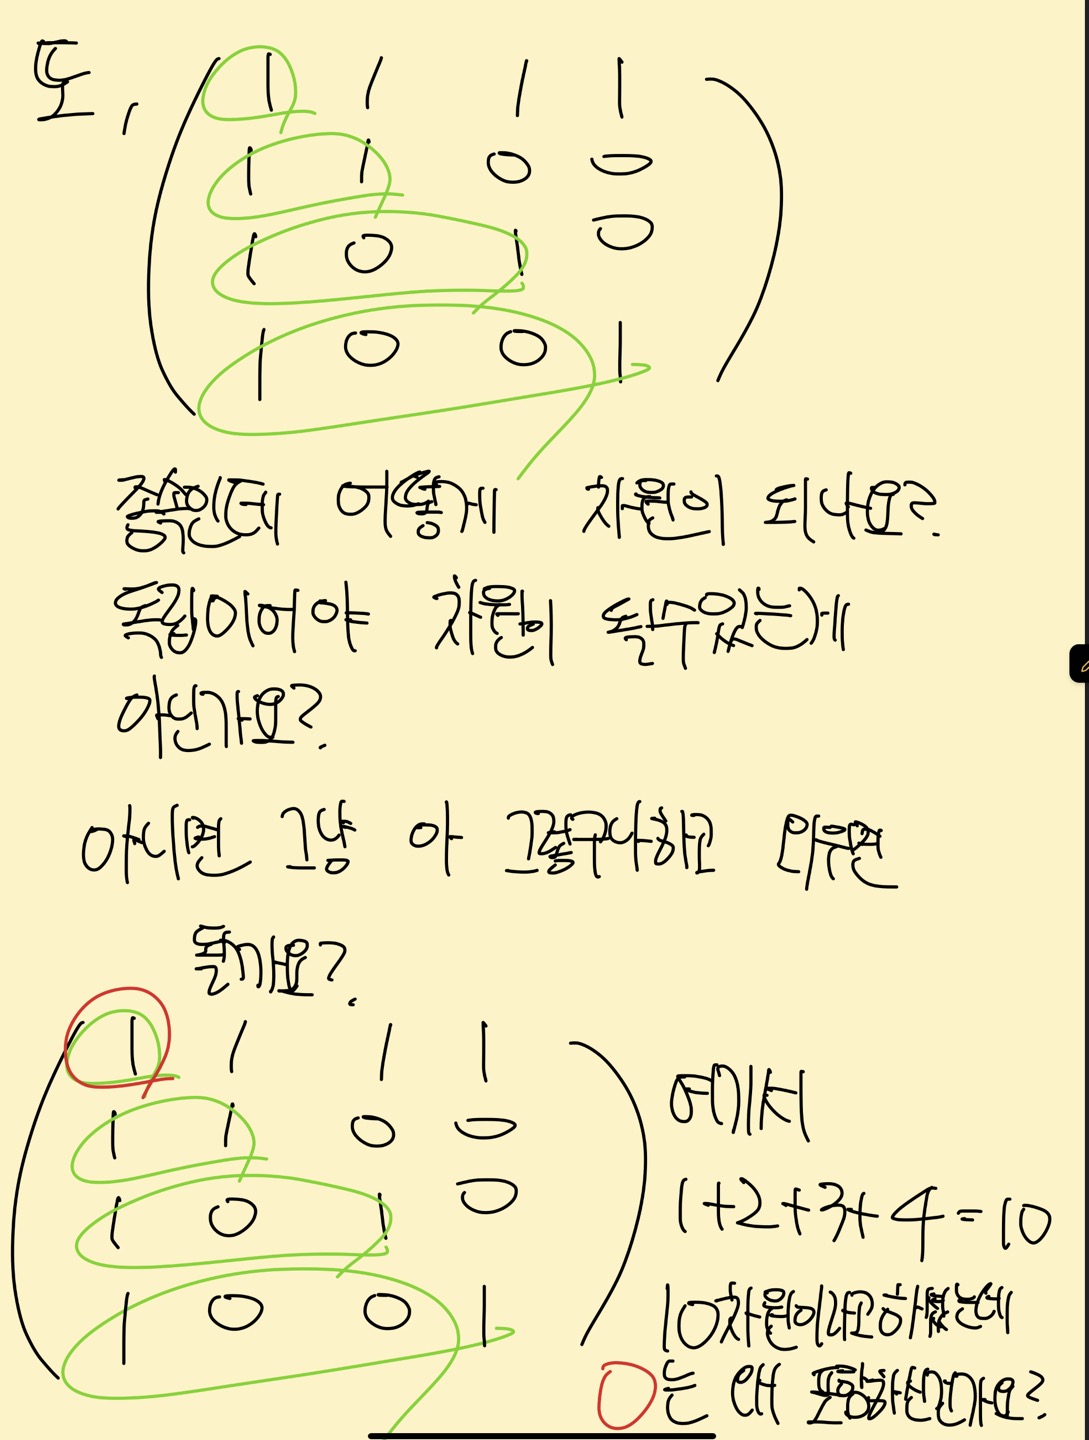 또, ( 1 1 1 1
1 1 0 0
1 0 1 0
1 0 0 1 )
종속인데 어떻게 차원이 되나요?
독립이어야 차원이 될수있는게
아닌가요?
아니면 그냥 아 그렇구나하고 외우면
될까요?
( 1 1 1 1
1 1 0 0
1 0 1 0
1 0 0 1 )
여기서
1+2+3+4=10
10차원이라고하셨는데
는 왜 포함하신건가요?